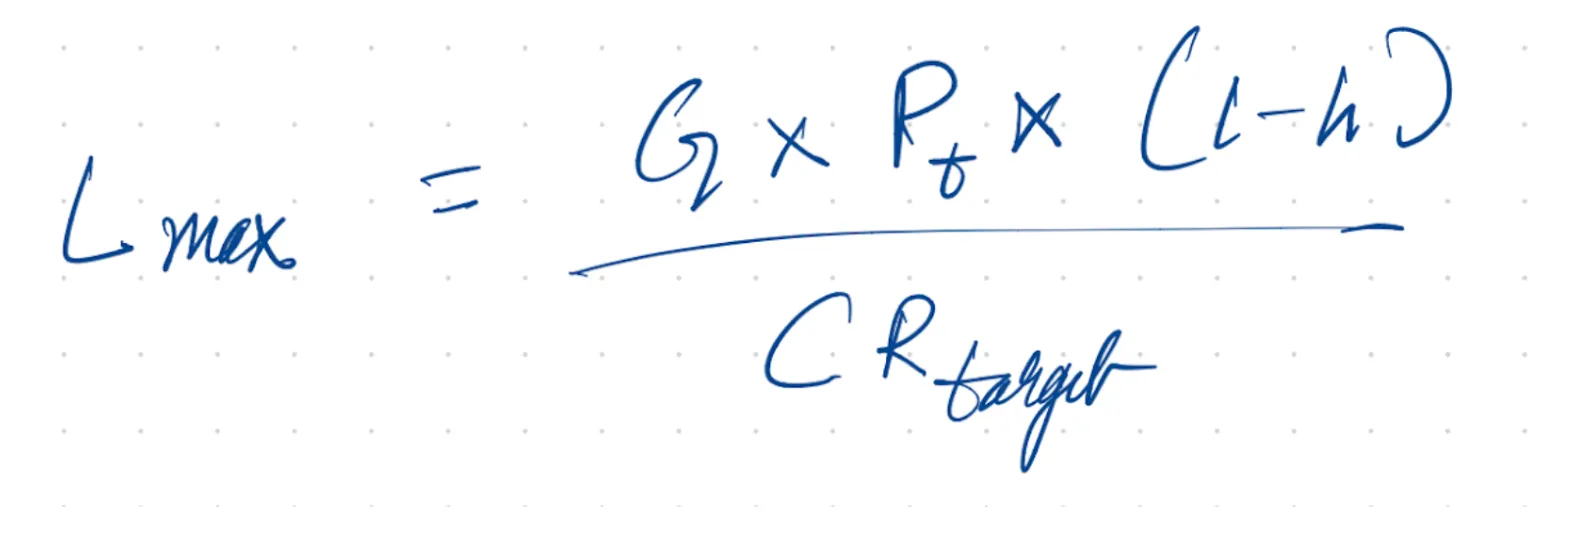 L_max = (G × P_t × (1-h)) / CR_target